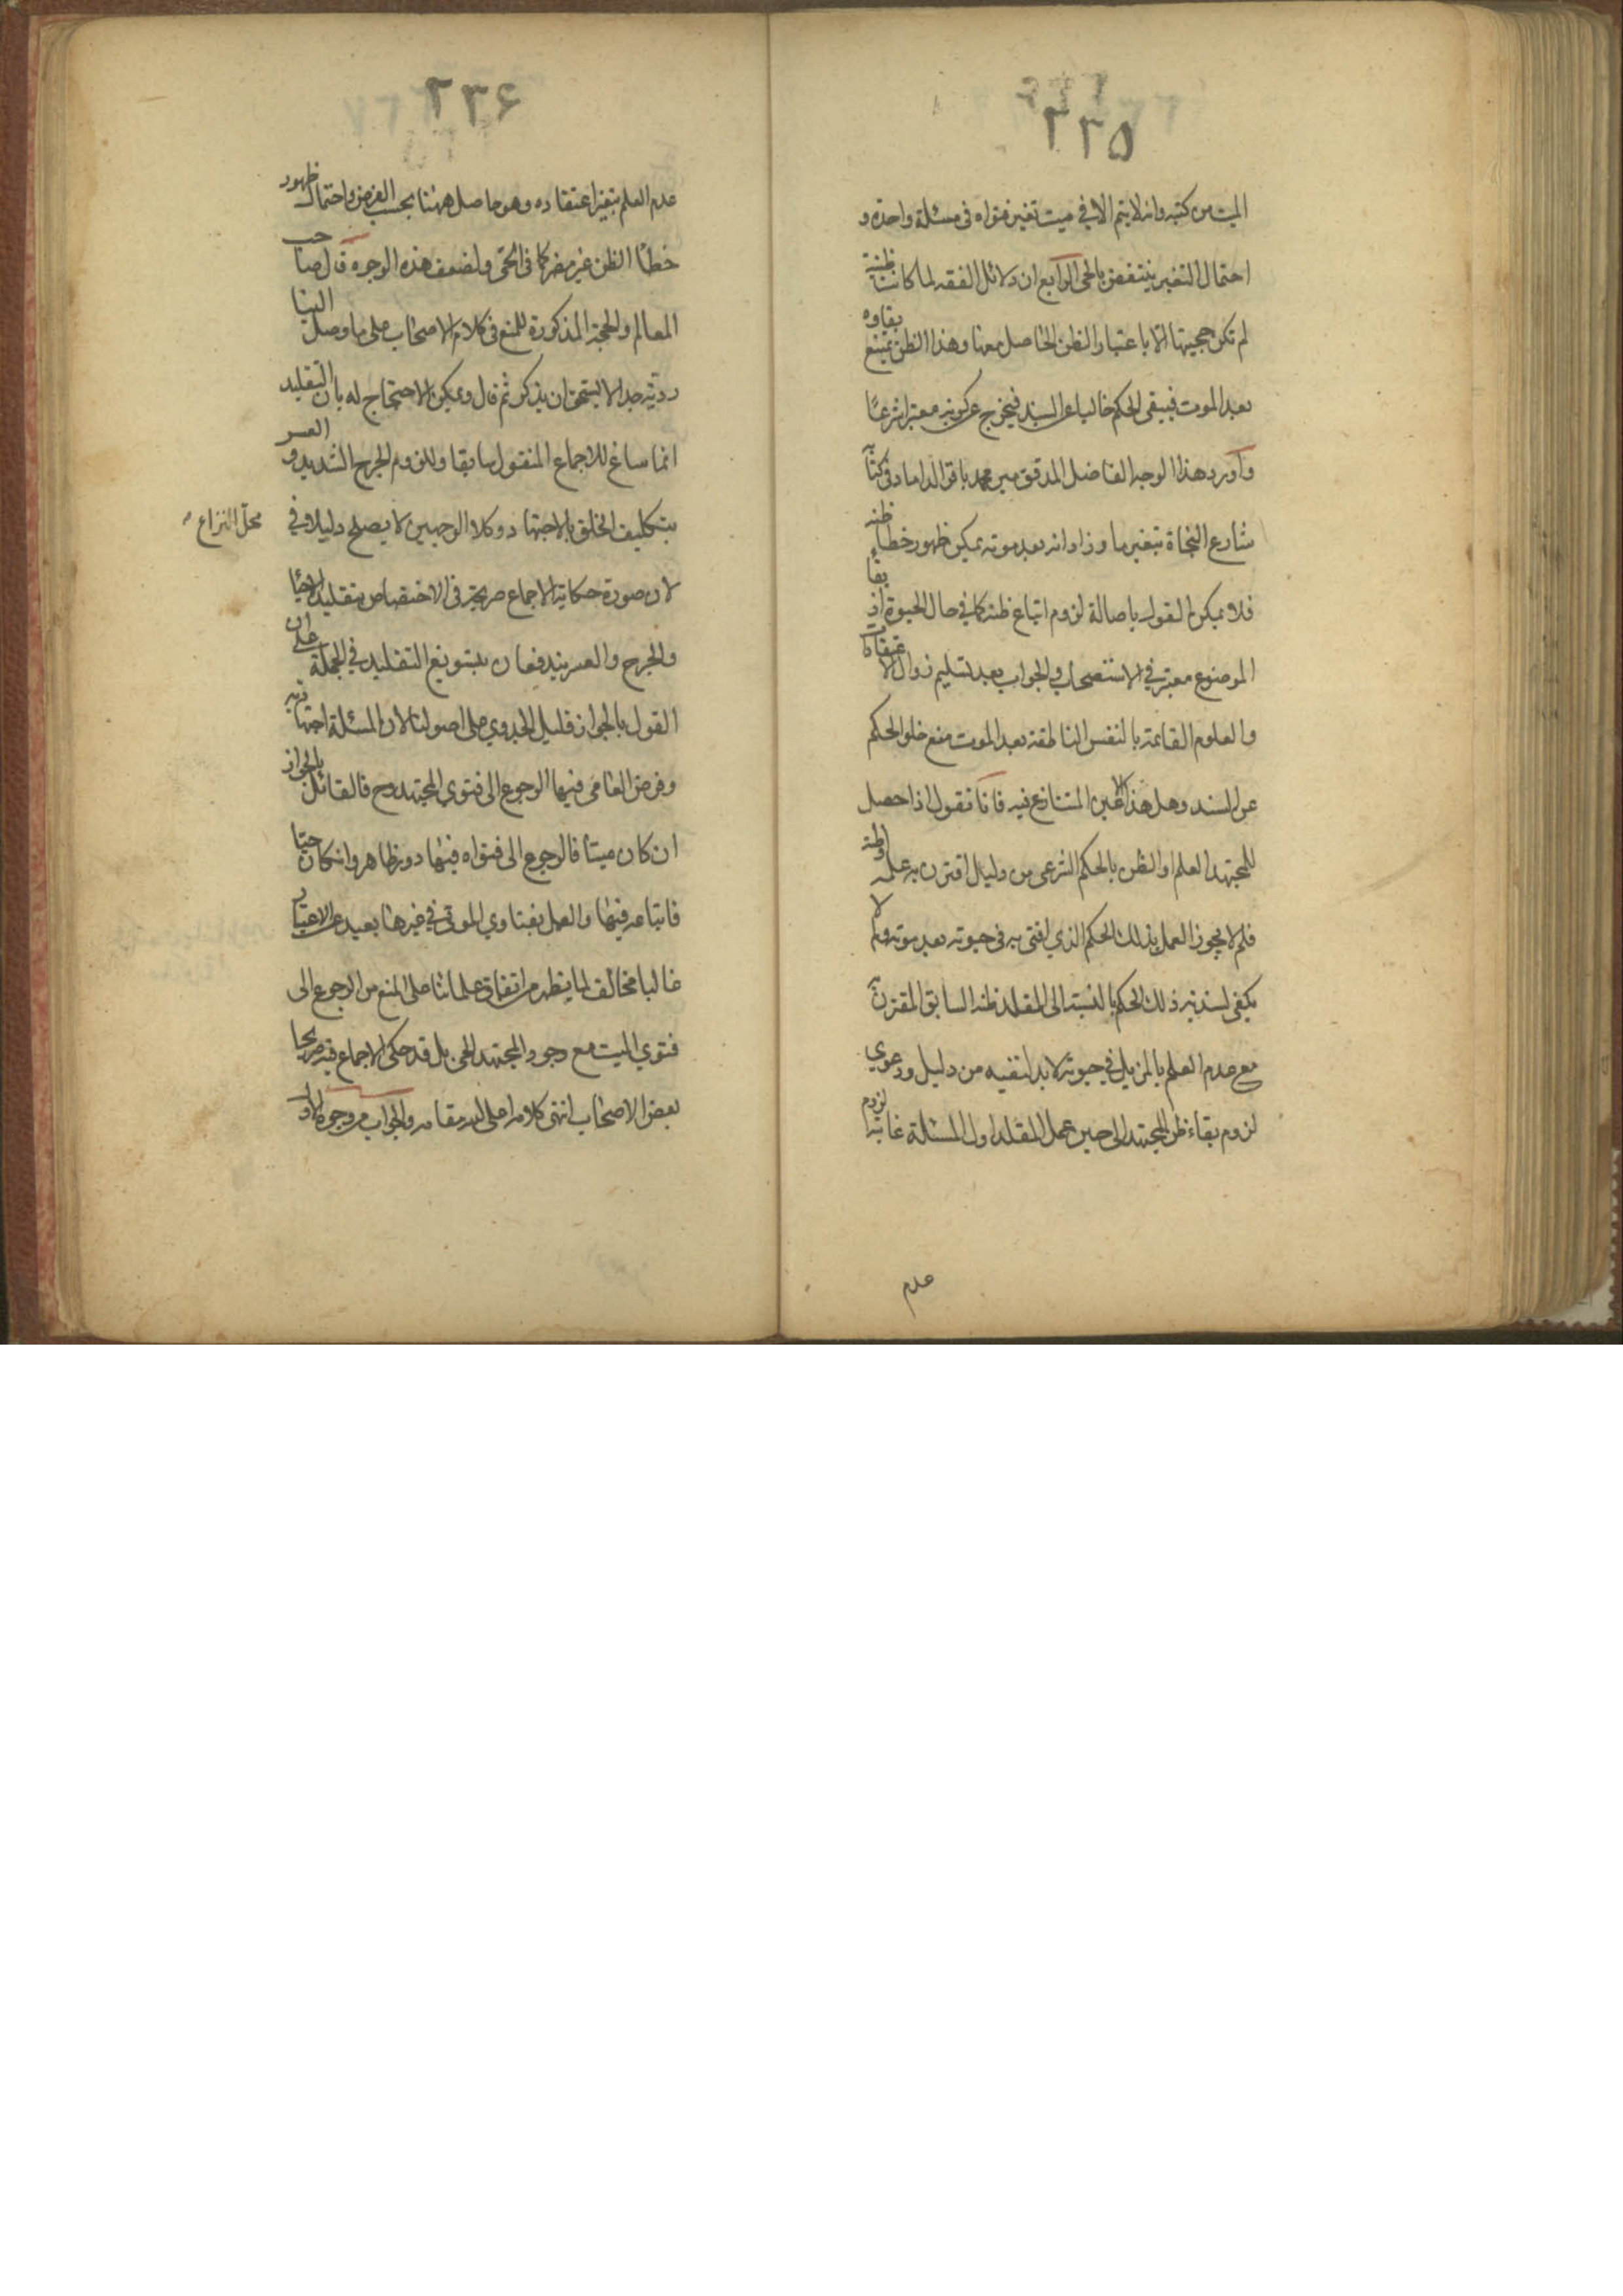 ٢٣٥
الميت من كتبه وانه لا يتم الا في ميت تغير فتواه في مسئلة واحدة و
احتمال التغير ينتقض بالحي الرابع ان دلائل الفقه لما كانت ظنية
لم تكن حجيتها الا باعتبار الظن الحاصل معها وهذا الظن يمتنع بقاوه
بعد الموت فيبقى الحكم خاليا عن السند فيخرج عن كونه معتبرا شرعًا
واورد هذا الوجه الفاضل المدقق مير محمد باقر الداماد في كتاب
شارع النجاة بتغير ما وزاد انه بعد موته يمكن ظهور خطأ ظنه
فلا يمكن القول باصالة لزوم اتباع ظنه كما في حال الحيوة اذ بقا
الموضوع معتبر في الاستصحاب والجواب بعد تسليم زوال الاعتقادات
والعلوم القائمة بالنفس الناطقة بعد الموت منع خلو الحكم
عن السند وهل هذا الا عين المتنازع فيه فانا نقول اذا حصل
للمجتهد العلم او الظن بالحكم الشرعي من دليل اقترن به علمه او ظنه
فلم لا يجوز العمل بذلك الحكم الذي افتى به في حيوته بعد موته ولم لا
يكفي لسندية ذلك الحكم بالنسبة الى المقلد ظنه السابق المقترن به
مع عدم العلم بالمزيل في حيوته لا بد لنفيه من دليل ودعوي
لزوم بقاء ظن المجتهد الى حين عمل المقلد اول المسئلة غايته لزوم
عدم
٢٣۶
عدم العلم بتغير اعتقاده وهو حاصل ههنا بحسب الفرض واحتمال ظهور
خطأ الظن غير مضر كما في الحي ولضعف هذه الوجوه قال صاحب
المعالم والحجة المذكورة للمنع في كلام الاصحاب على ما وصل الينا
ردية جدا لا يستحق ان يذكر ثم قال ويمكن الاحتجاج له بان التقليد
انما ساغ للاجماع المنقول سابقا وللزوم الحرج الشديد والعسر
بتكليف الخلق بالاجتهاد وكلا الوجهين لا يصلح دليلا في محل النزاع
لان صورة حكاية الاجماع صريحة في الاختصاص بتقليد الاحيا
والحرج والعسر يندفعان بتسويغ التقليد في الجملة على ان
القول بالجواز قليل الجدوي على اصولنا لان المسئلة اجتهادية
وفرض العامي فيها الرجوع الى فتوي المجتهد وح فالقائل بالجواز
ان كان ميتا فالرجوع الى فتواه فيها دور ظاهر وان كان حيا
فاتباعه فيها والعمل بفتاوي الموتى في غيرها بعيد عن الاعتبار
غالبا مخالف لما يظهر من اتفاق علمائنا على المنع من الرجوع الى
فتوي الميت مع وجود المجتهد الحي بل قد حكى الاجماع فيه صريحا
بعض الاصحاب انتهى كلامه اعلى الله مقامه والجواب من وجوه الاول